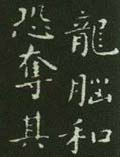 龍腦和
恐奪其